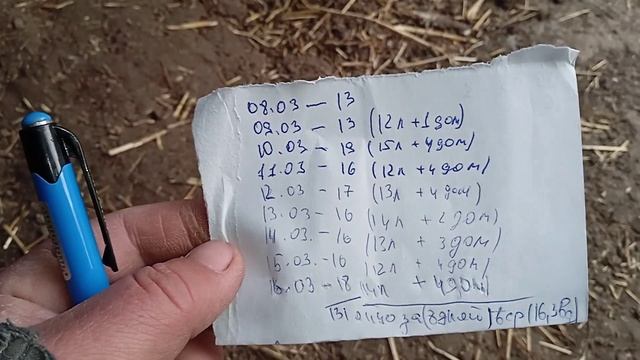 08.03 — 13
09.03 — 13 (12л + 1 дом)
10.03 — 19 (15л + 4 дом)
11.03 — 16 (12л + 4 дом)
12.03 — 17 (13л + 4 дом)
13.03 — 16 (14л + 2 дом)
14.03. — 16 (13л + 3 дом)
15.03 — 16 (12л + 4 дом)
16.03 — 18 14л + 4 дом
131 за